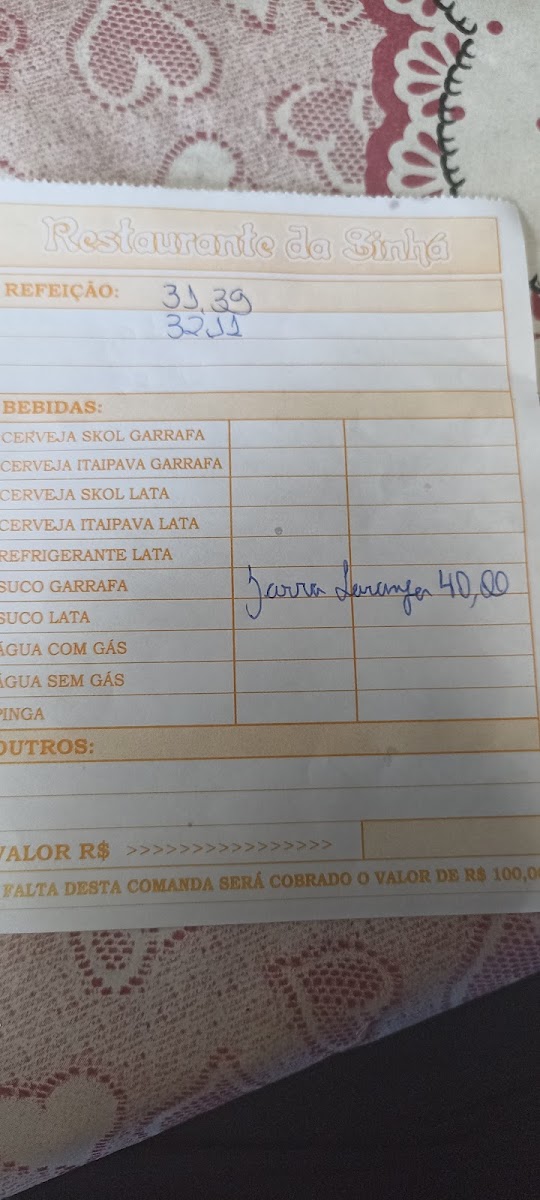 Restaurante da Sinhá
REFEIÇÃO: 31,39
32,11
BEBIDAS:
CERVEJA SKOL GARRAFA
CERVEJA ITAIPAVA GARRAFA
CERVEJA SKOL LATA
CERVEJA ITAIPAVA LATA
REFRIGERANTE LATA
SUCO GARRAFA Jarra Laranja 40,00
SUCO LATA
ÁGUA COM GÁS
ÁGUA SEM GÁS
PINGA
OUTROS:
VALOR R$ >>>>>>>>>>>>>>>>
FALTA DESTA COMANDA SERÁ COBRADO O VALOR DE R$ 100,00